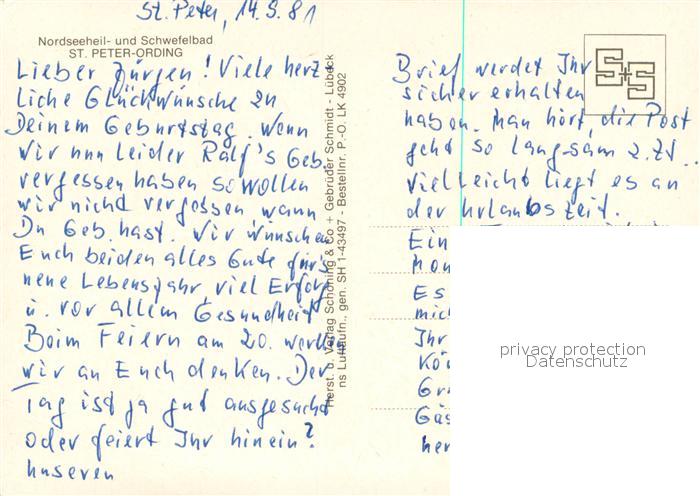 St. Peter, 14.9.81
Nordseeheil- und Schwefelbad
ST. PETER-ORDING
Lieber Jürgen! Viele herz-
liche Glückwünsche zu
Deinem Geburtstag. Wenn
wir nun leider Ralf's Geb.
vergessen haben so wollen
wir nicht vergessen, wann
Du Geb. hast. Wir wünschen
Euch beiden alles Gute für's
neue Lebensjahr, viel Erfolg
u. vor allem Gesundheit
Beim Feiern am 20. werden
wir an Euch denken. Der
Tag ist ja gut ausgesucht
oder feiert Ihr hinein?
Unseren
Herst. u. Verlag Schöning & Co + Gebrüder Schmidt - Lübeck
ns Luftaufn., gen. SH 1-43497 - Bestellnr. P.-O. LK 4902
S+S
Brief werdet Ihr
sicher erhalten
haben. Man hört, die Post
geht so langsam z.Zt..
Vielleicht liegt es an
der Urlaubszeit.
Ein
Es
mich
Ihr
privacy protection
Datenschutz